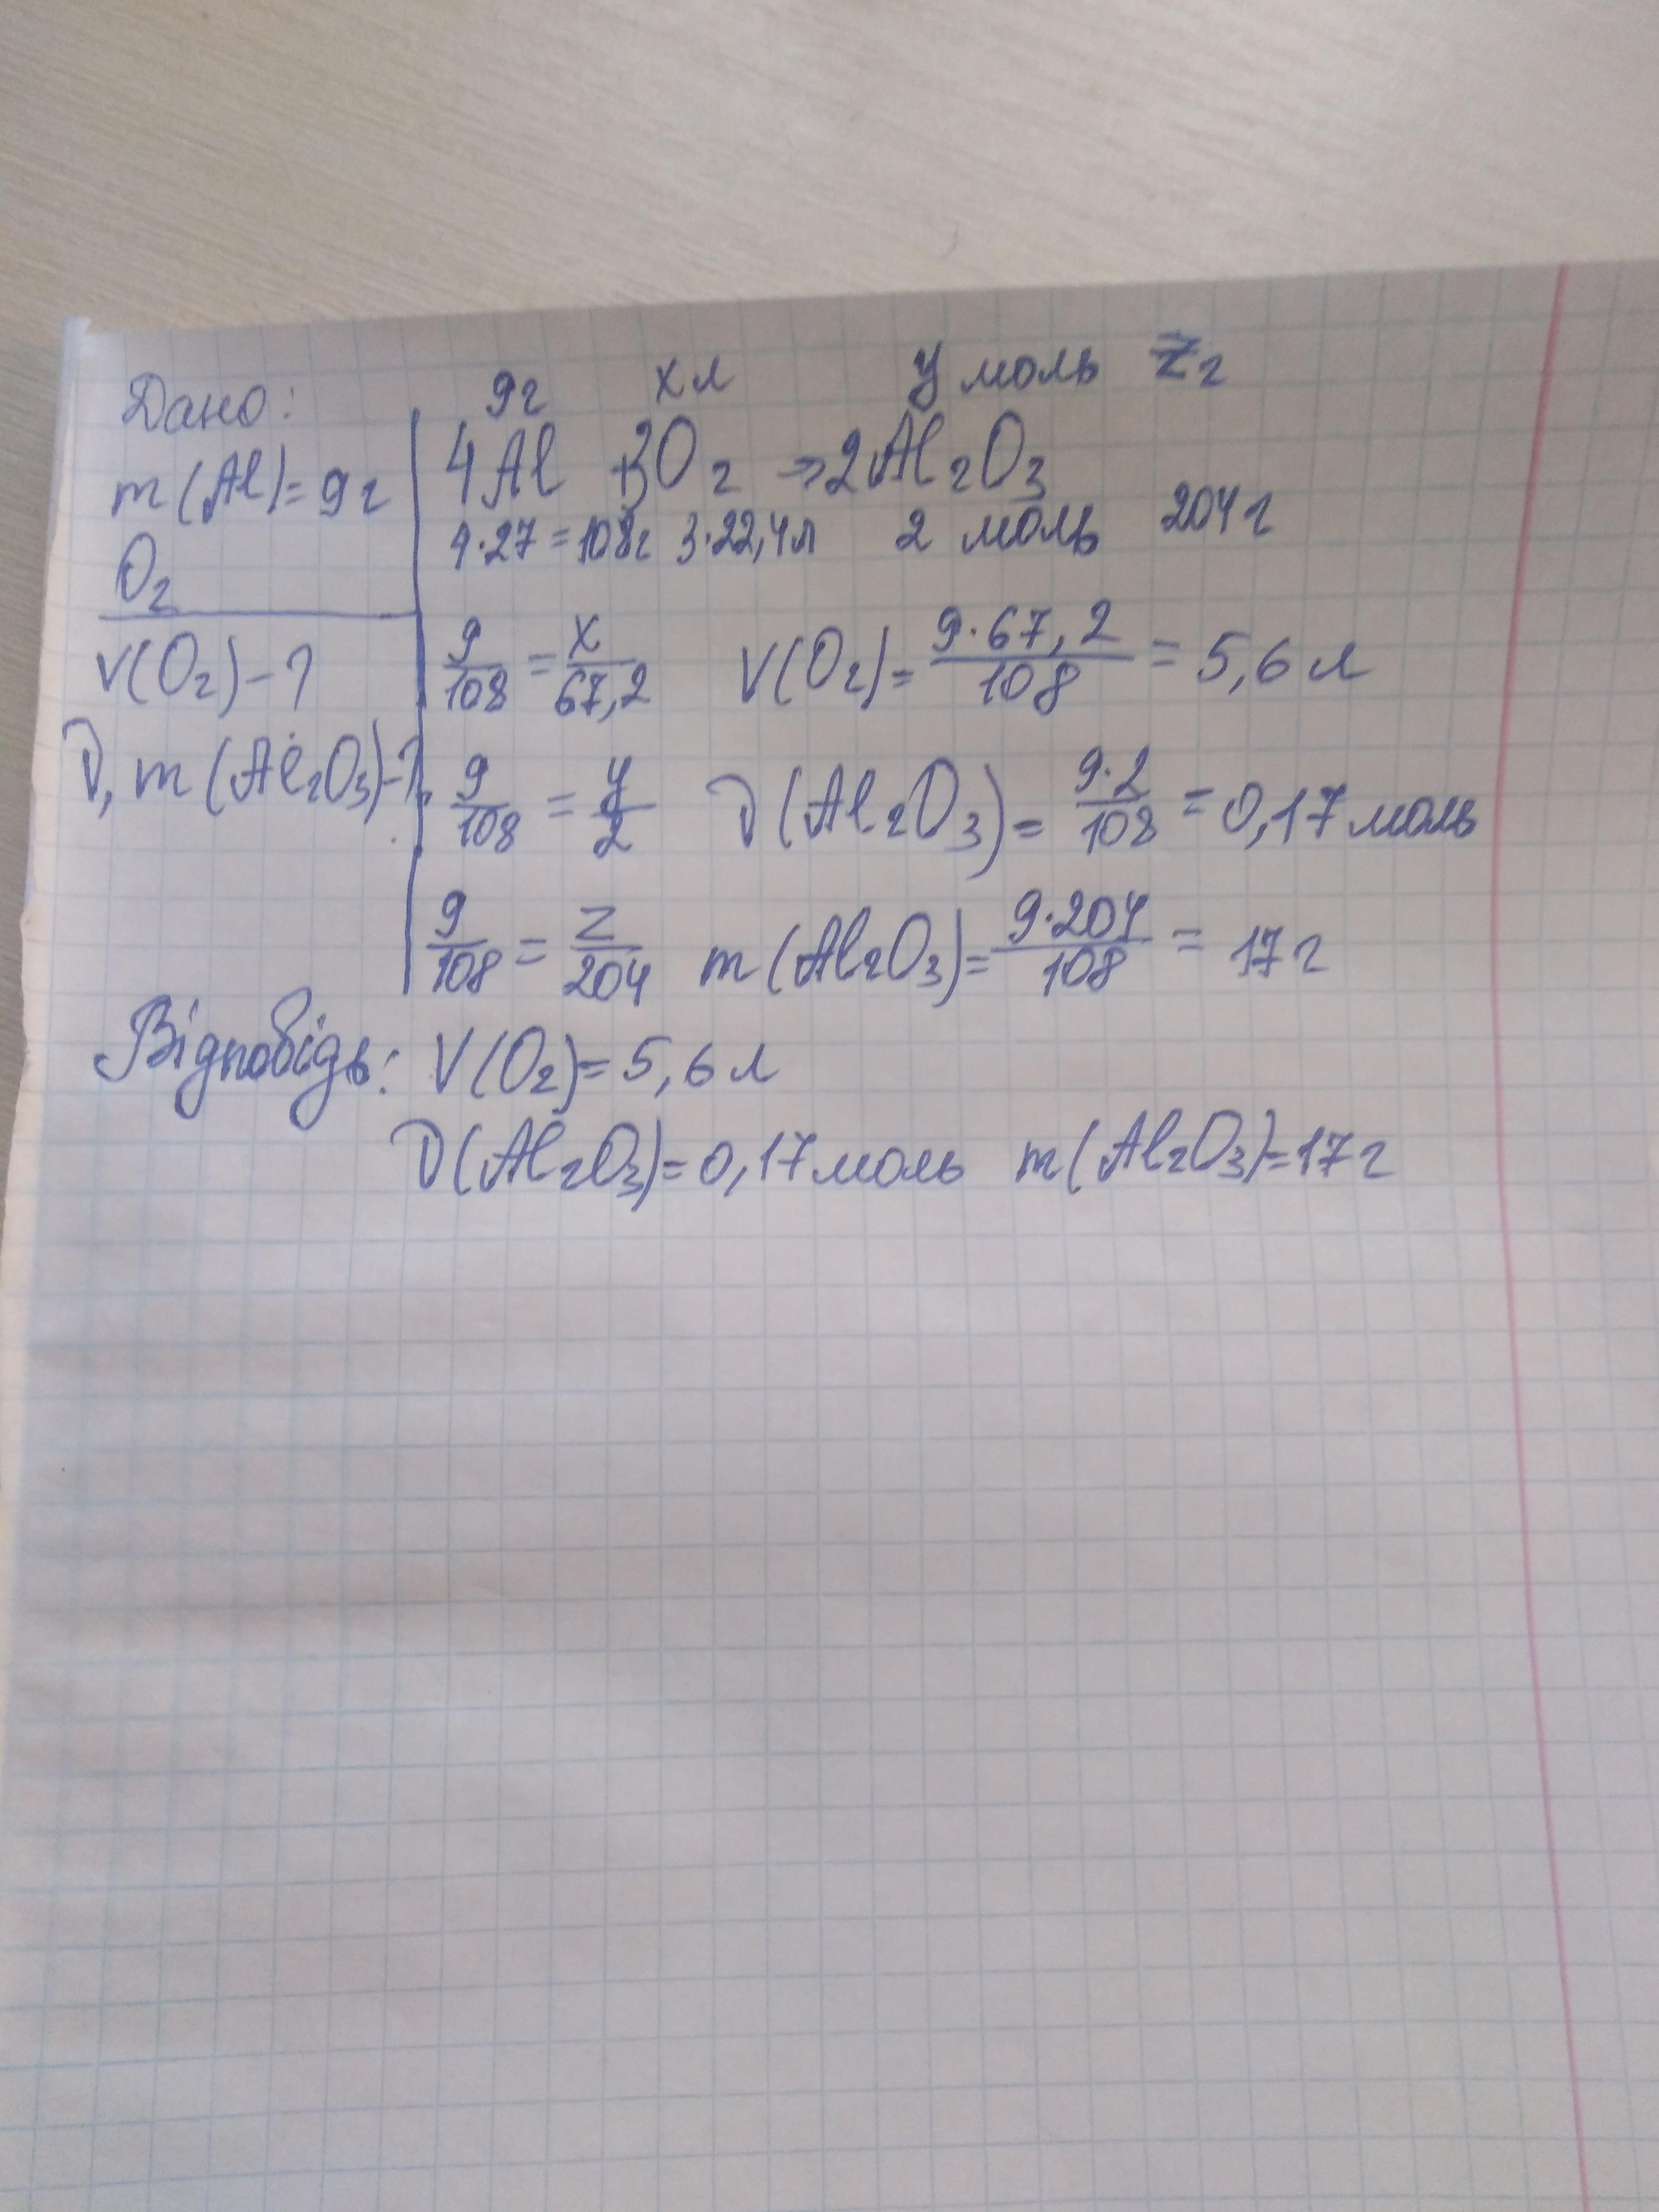 Дано:
m(Al)=9г
O₂
V(O₂)-?
ν, m(Al₂O₃)-?
9г xл y моль zг
4Al +3O₂ →2Al₂O₃
4·27=108г 3·22,4л 2 моль 204г
9/108 = x/67,2 V(O₂)= 9·67,2/108 = 5,6 л
9/108 = y/2 ν(Al₂O₃)= 9·2/108 = 0,17 моль
9/108 = z/204 m(Al₂O₃)= 9·204/108 = 17 г
Відповідь: V(O₂)= 5,6 л
ν(Al₂O₃)= 0,17 моль m(Al₂O₃)=17 г